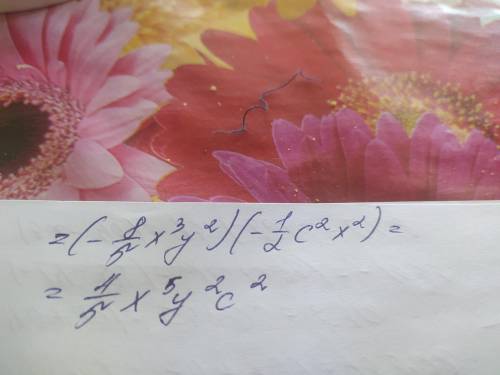 = (- 8/5 x³y²)(- 1/2 c²x²) =
= 4/5 x⁵y²c²